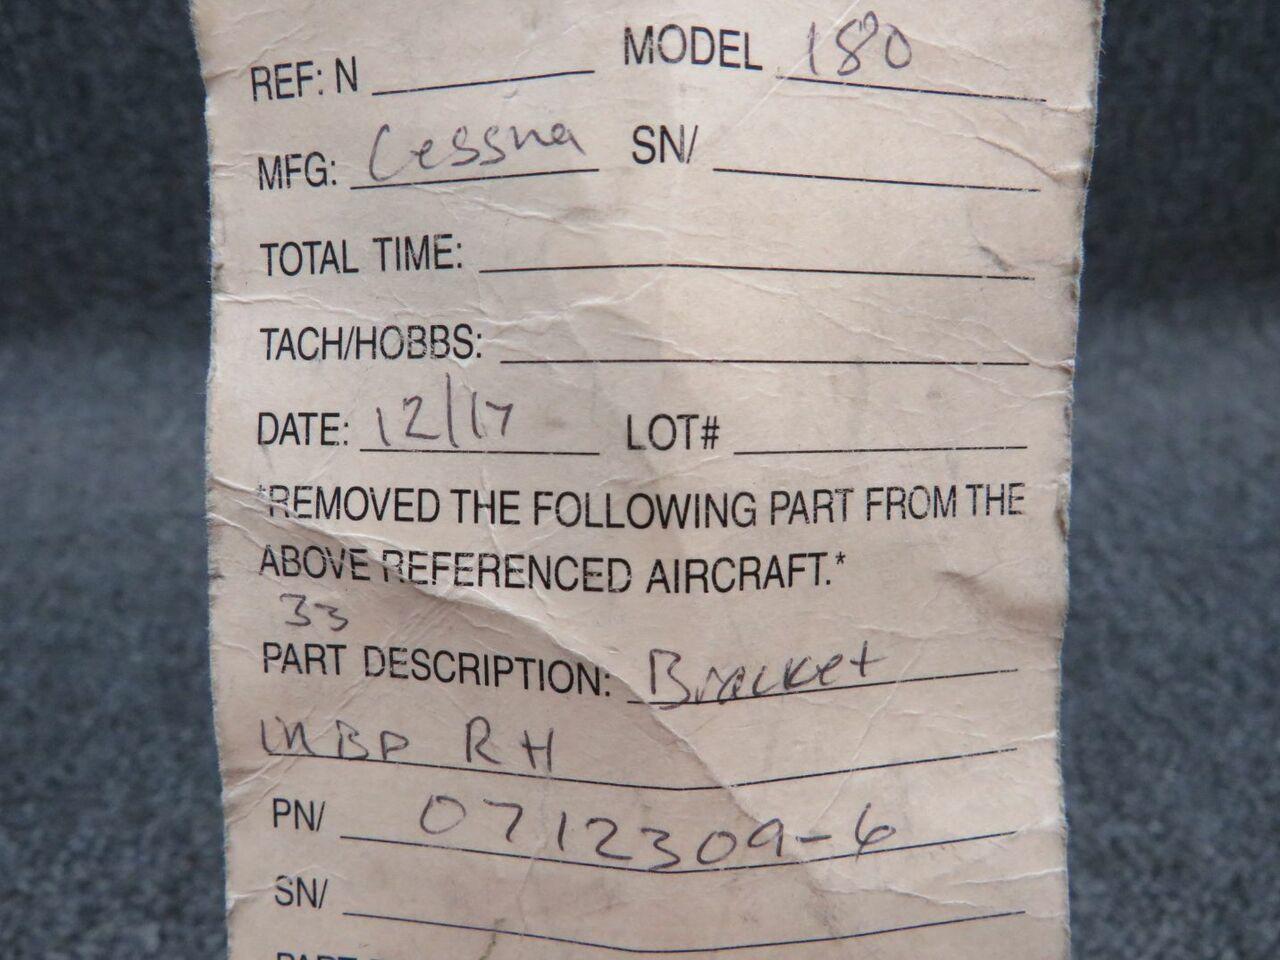 REF: N MODEL 180
MFG: Cessna SN/
TOTAL TIME:
TACH/HOBBS:
DATE: 12/17 LOT#
*REMOVED THE FOLLOWING PART FROM THE
ABOVE REFERENCED AIRCRAFT.*
33
PART DESCRIPTION: Bracket
INBD RH
PN/ 0712309-6
SN/
PART